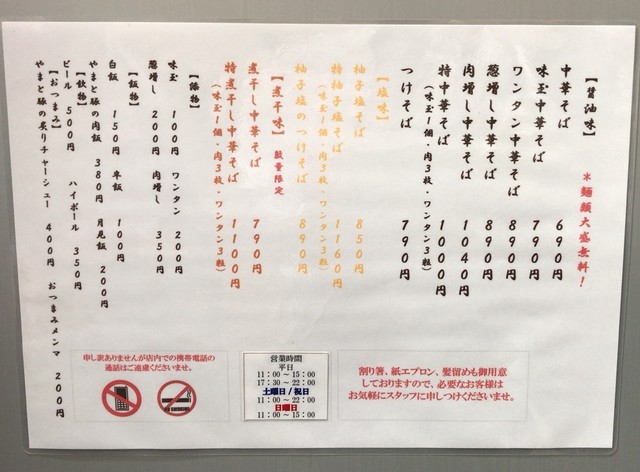 【醤油味】
＊麺類大盛無料！
中華そば 690円
味玉中華そば 790円
ワンタン中華そば 890円
葱増し中華そば 890円
肉増し中華そば 1040円
特中華そば 1000円
（味玉1個・肉3枚・ワンタン3粒）
つけそば 790円
【塩味】
柚子塩そば 850円
特柚子塩そば 1160円
（味玉1個・肉3枚・ワンタン3粒）
柚子塩のつけそば 890円
【煮干味】数量限定
煮干し中華そば 790円
特煮干し中華そば 1100円
（味玉1個・肉3枚・ワンタン3粒）
【添物】
味玉 100円 ワンタン 200円
葱増し 200円 肉増し 350円
【飯物】
白飯 150円 半飯 100円
やまと豚の肉飯 380円 月見飯 200円
【飲物】
ビール 500円 ハイボール 350円
【おつまみ】
やまと豚の炙りチャーシュー 400円 おつまみメンマ 200円
申し訳ありませんが店内での携帯電話の
通話はご遠慮くださいませ。
NO SMOKING
営業時間
平日
11：00～15：00
17：30～22：00
土曜日/祝日
11：00～22：00
日曜日
11：00～15：00
割り箸、紙エプロン、髪留めも御用意
しておりますので、必要なお客様は
お気軽にスタッフに申しつけくださいませ。